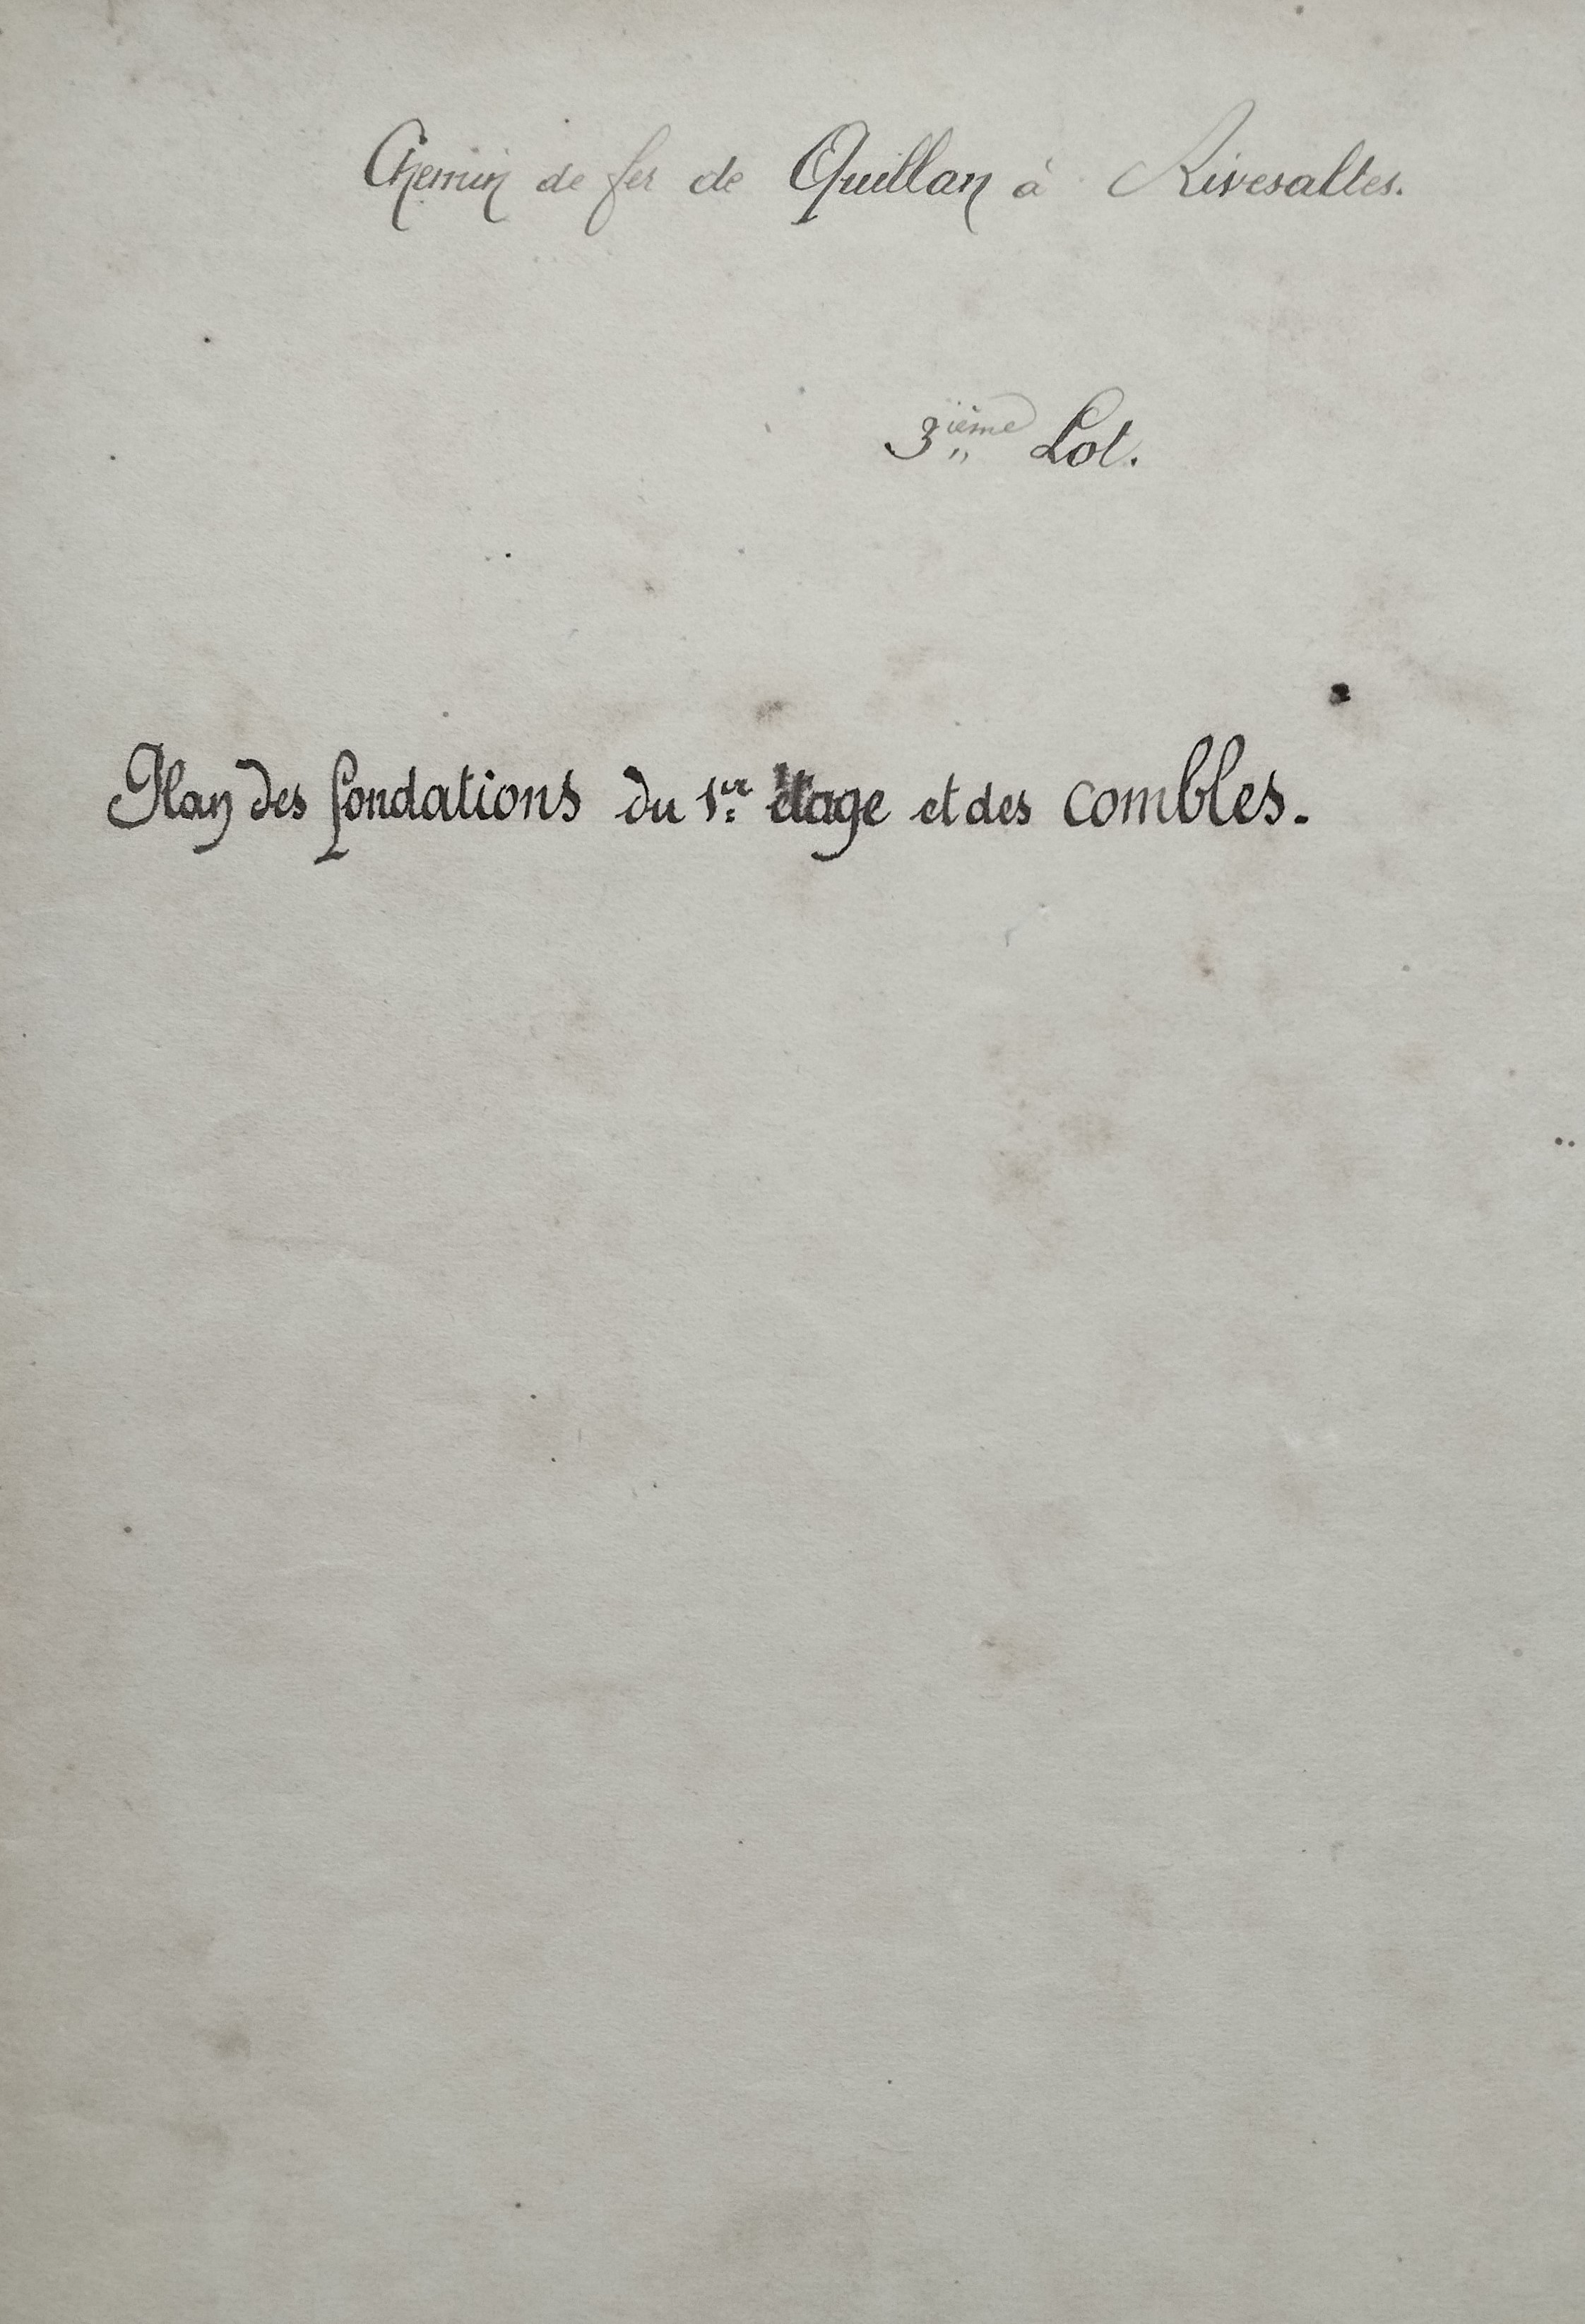 Chemin de fer de Quillan à Rivesaltes.
3ième Lot.
Plan des fondations du 1er étage et des combles.